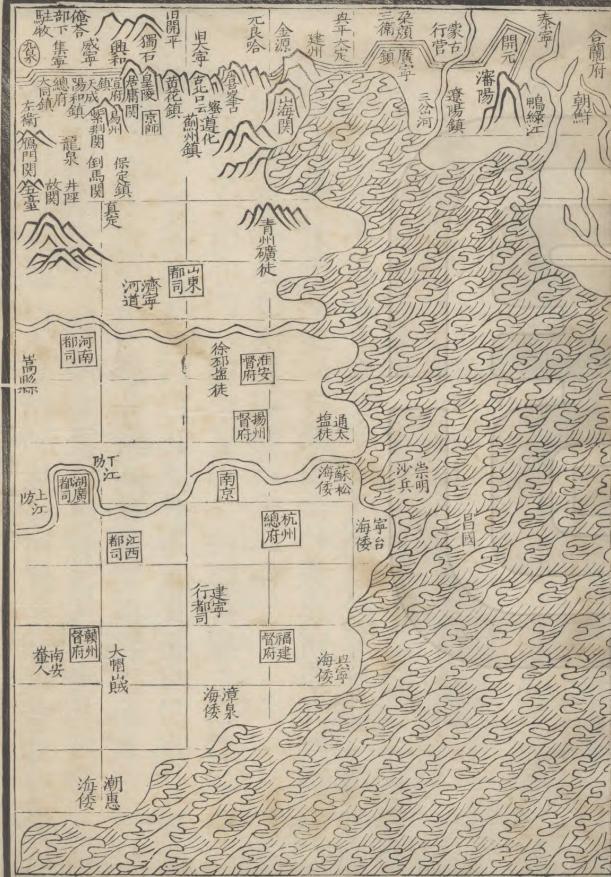 合蘭府
朝鮮
泰寧
開元
鴨綠江
瀋陽
蒙古行營
遼陽鎮
三岔河
朶顏三衛
廣寧鎮
與平大定
建州
金源
山海関
元良哈
旧大寧
遵化
薊州鎮
古北口
旧開平
黃花鎮
獨石
皇陵
京師
居庸関
興和
宣府鎮
易州
紫荆関
威寧
集寧
天成
陽和鎮
總府
大同鎮
左衛
俺荅部下駐牧
鴈門関
龍泉
倒馬関
保定鎮
井陘
故関
真定
五臺
青州礦徒
山東都司
濟寧河道
河南都司
嵩縣
徐邳塩徒
淮安督府
揚州督府
通太塩徒
南京
蘇松海倭
崇明沙兵
下江防
湖廣都司
上江防
江西都司
杭州總府
寧台海倭
昌國
建寧行都司
福建督府
贛州督府
南安𤲞人
大帽山賊
興寧海倭
漳泉海倭
潮惠海倭